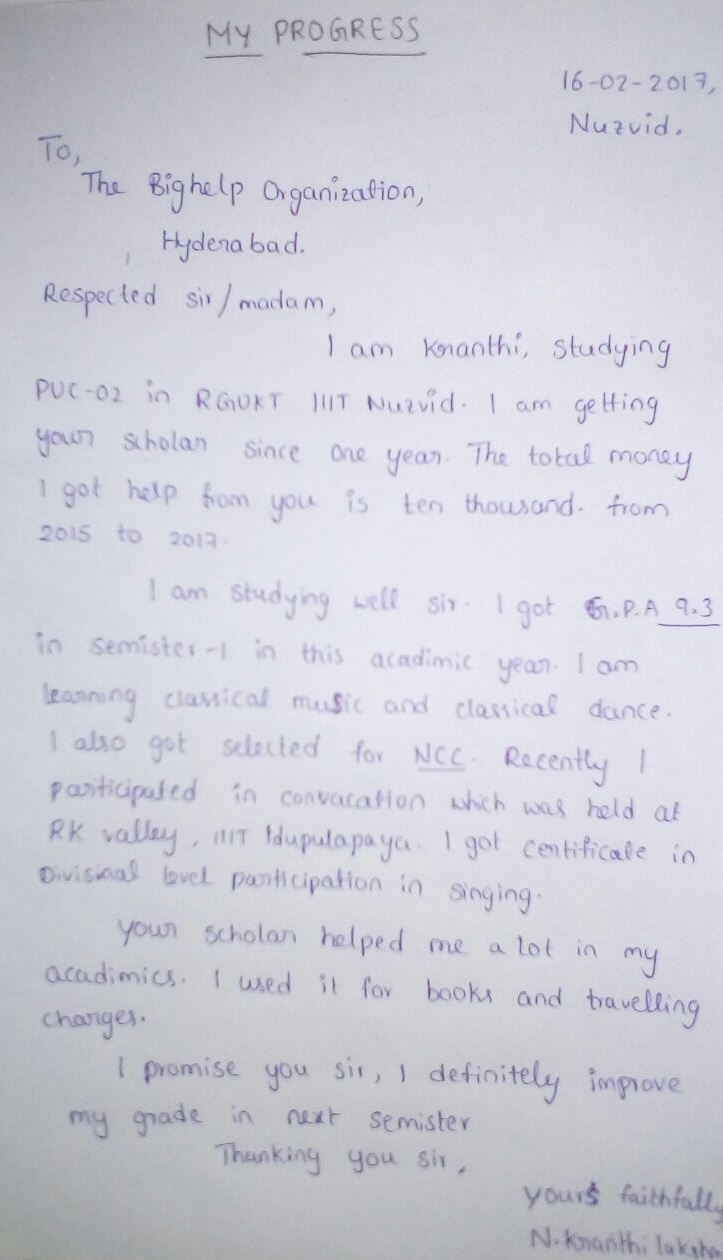 MY PROGRESS
16-02-2017,
Nuzvid.
To,
The Bighelp Organization,
Hyderabad.
Respected sir/madam,
I am Kranthi, studying
PUC-02 in RGUKT IIIT Nuzvid. I am getting
your scholar since one year. The total money
I got help from you is ten thousand. from
2015 to 2017.
I am studying well sir. I got G.P.A 9.3
in semister-1 in this acadimic year. I am
learning classical music and classical dance.
I also got selected for NCC. Recently I
participated in convacation which was held at
RK valley, IIIT Idupulapaya. I got certificate in
Divisinal level participation in singing.
Your scholar helped me a lot in my
acadimics. I used it for books and travelling
charges.
I promise you sir, I definitely improve
my grade in next semister
Thanking you sir,
yours faithfully
N. Kranthi